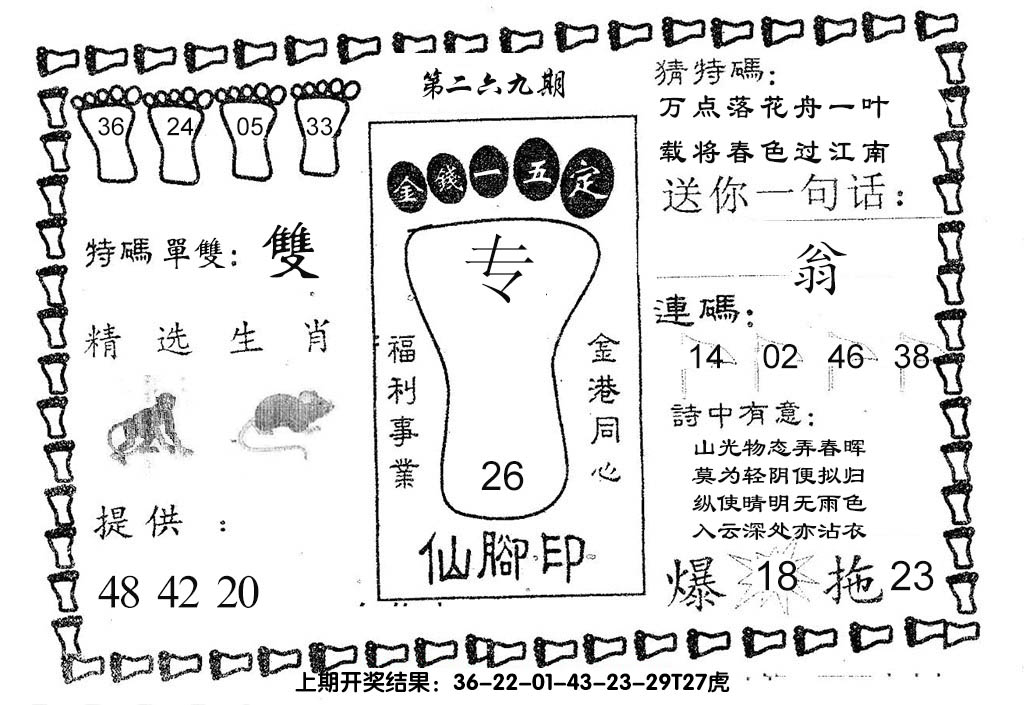 第二六九期
36 24 05 33
特碼單雙：雙
精选生肖
提供：
48 42 20
金錢一五定
专
福利事業
金港同心
26
仙腳印
猜特碼：
万点落花舟一叶
载将春色过江南
送你一句话：
翁
連碼：
14 02 46 38
詩中有意：
山光物态弄春晖
莫为轻阴便拟归
纵使晴明无雨色
入云深处亦沾衣
爆 18 拖 23
上期开奖结果：36-22-01-43-23-29T27虎